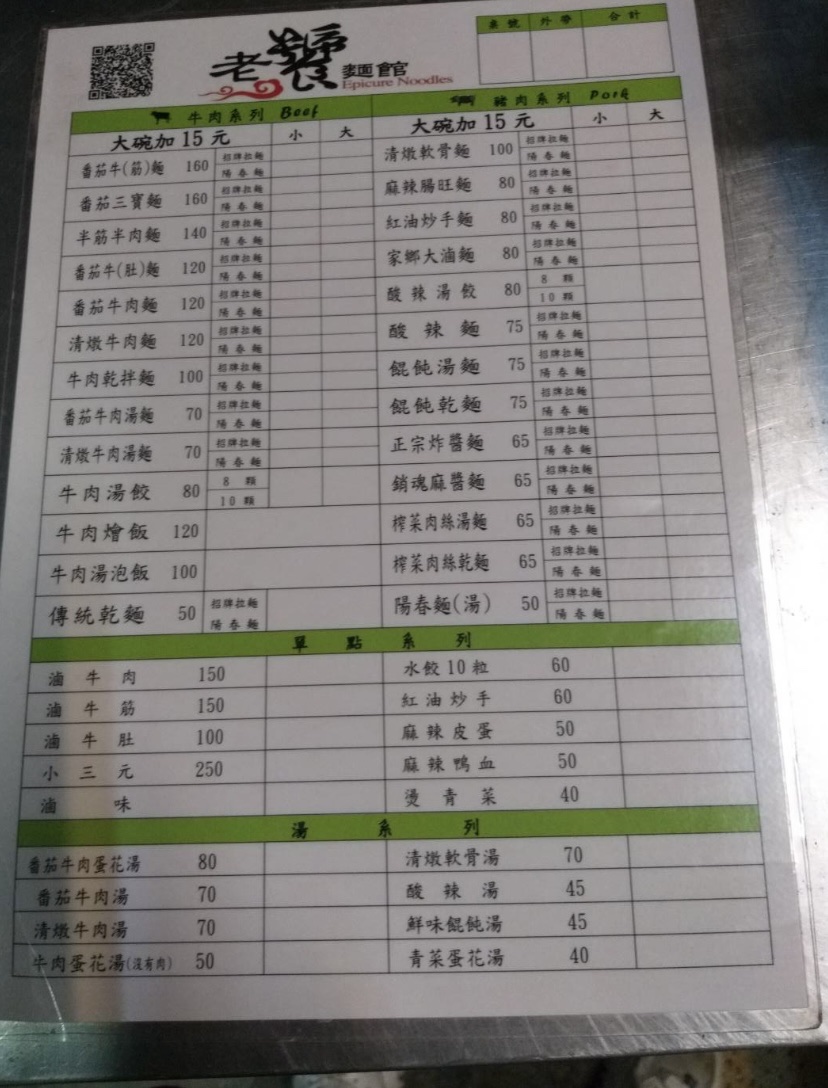 老饕 麵館
Epicure Noodles
桌號 外帶 合計
牛肉系列 Beef
大碗加15元 小 大
番茄牛(筋)麵 160 招牌拉麵 陽春麵
番茄三寶麵 160 招牌拉麵 陽春麵
半筋半肉麵 140 招牌拉麵 陽春麵
番茄牛(肚)麵 120 招牌拉麵 陽春麵
番茄牛肉麵 120 招牌拉麵 陽春麵
清燉牛肉麵 120 招牌拉麵 陽春麵
牛肉乾拌麵 100 招牌拉麵 陽春麵
番茄牛肉湯麵 70 招牌拉麵 陽春麵
清燉牛肉湯麵 70 招牌拉麵 陽春麵
牛肉湯餃 80 8顆 10顆
牛肉燴飯 120
牛肉湯泡飯 100
傳統乾麵 50 招牌拉麵 陽春麵
豬肉系列 Pork
大碗加15元 小 大
清燉軟骨麵 100 招牌拉麵 陽春麵
麻辣腸旺麵 80 招牌拉麵 陽春麵
紅油炒手麵 80 招牌拉麵 陽春麵
家鄉大滷麵 80 招牌拉麵 陽春麵
酸辣湯餃 80 8顆 10顆
酸辣麵 75 招牌拉麵 陽春麵
餛飩湯麵 75 招牌拉麵 陽春麵
餛飩乾麵 75 招牌拉麵 陽春麵
正宗炸醬麵 65 招牌拉麵 陽春麵
銷魂麻醬麵 65 招牌拉麵 陽春麵
榨菜肉絲湯麵 65 招牌拉麵 陽春麵
榨菜肉絲乾麵 65 招牌拉麵 陽春麵
陽春麵(湯) 50 招牌拉麵 陽春麵
單點系列
滷牛肉 150
滷牛筋 150
滷牛肚 100
小三元 250
滷味
水餃10粒 60
紅油炒手 60
麻辣皮蛋 50
麻辣鴨血 50
燙青菜 40
湯系列
番茄牛肉蛋花湯 80
番茄牛肉湯 70
清燉牛肉湯 70
牛肉蛋花湯(沒有肉) 50
清燉軟骨湯 70
酸辣湯 45
鮮味餛飩湯 45
青菜蛋花湯 40